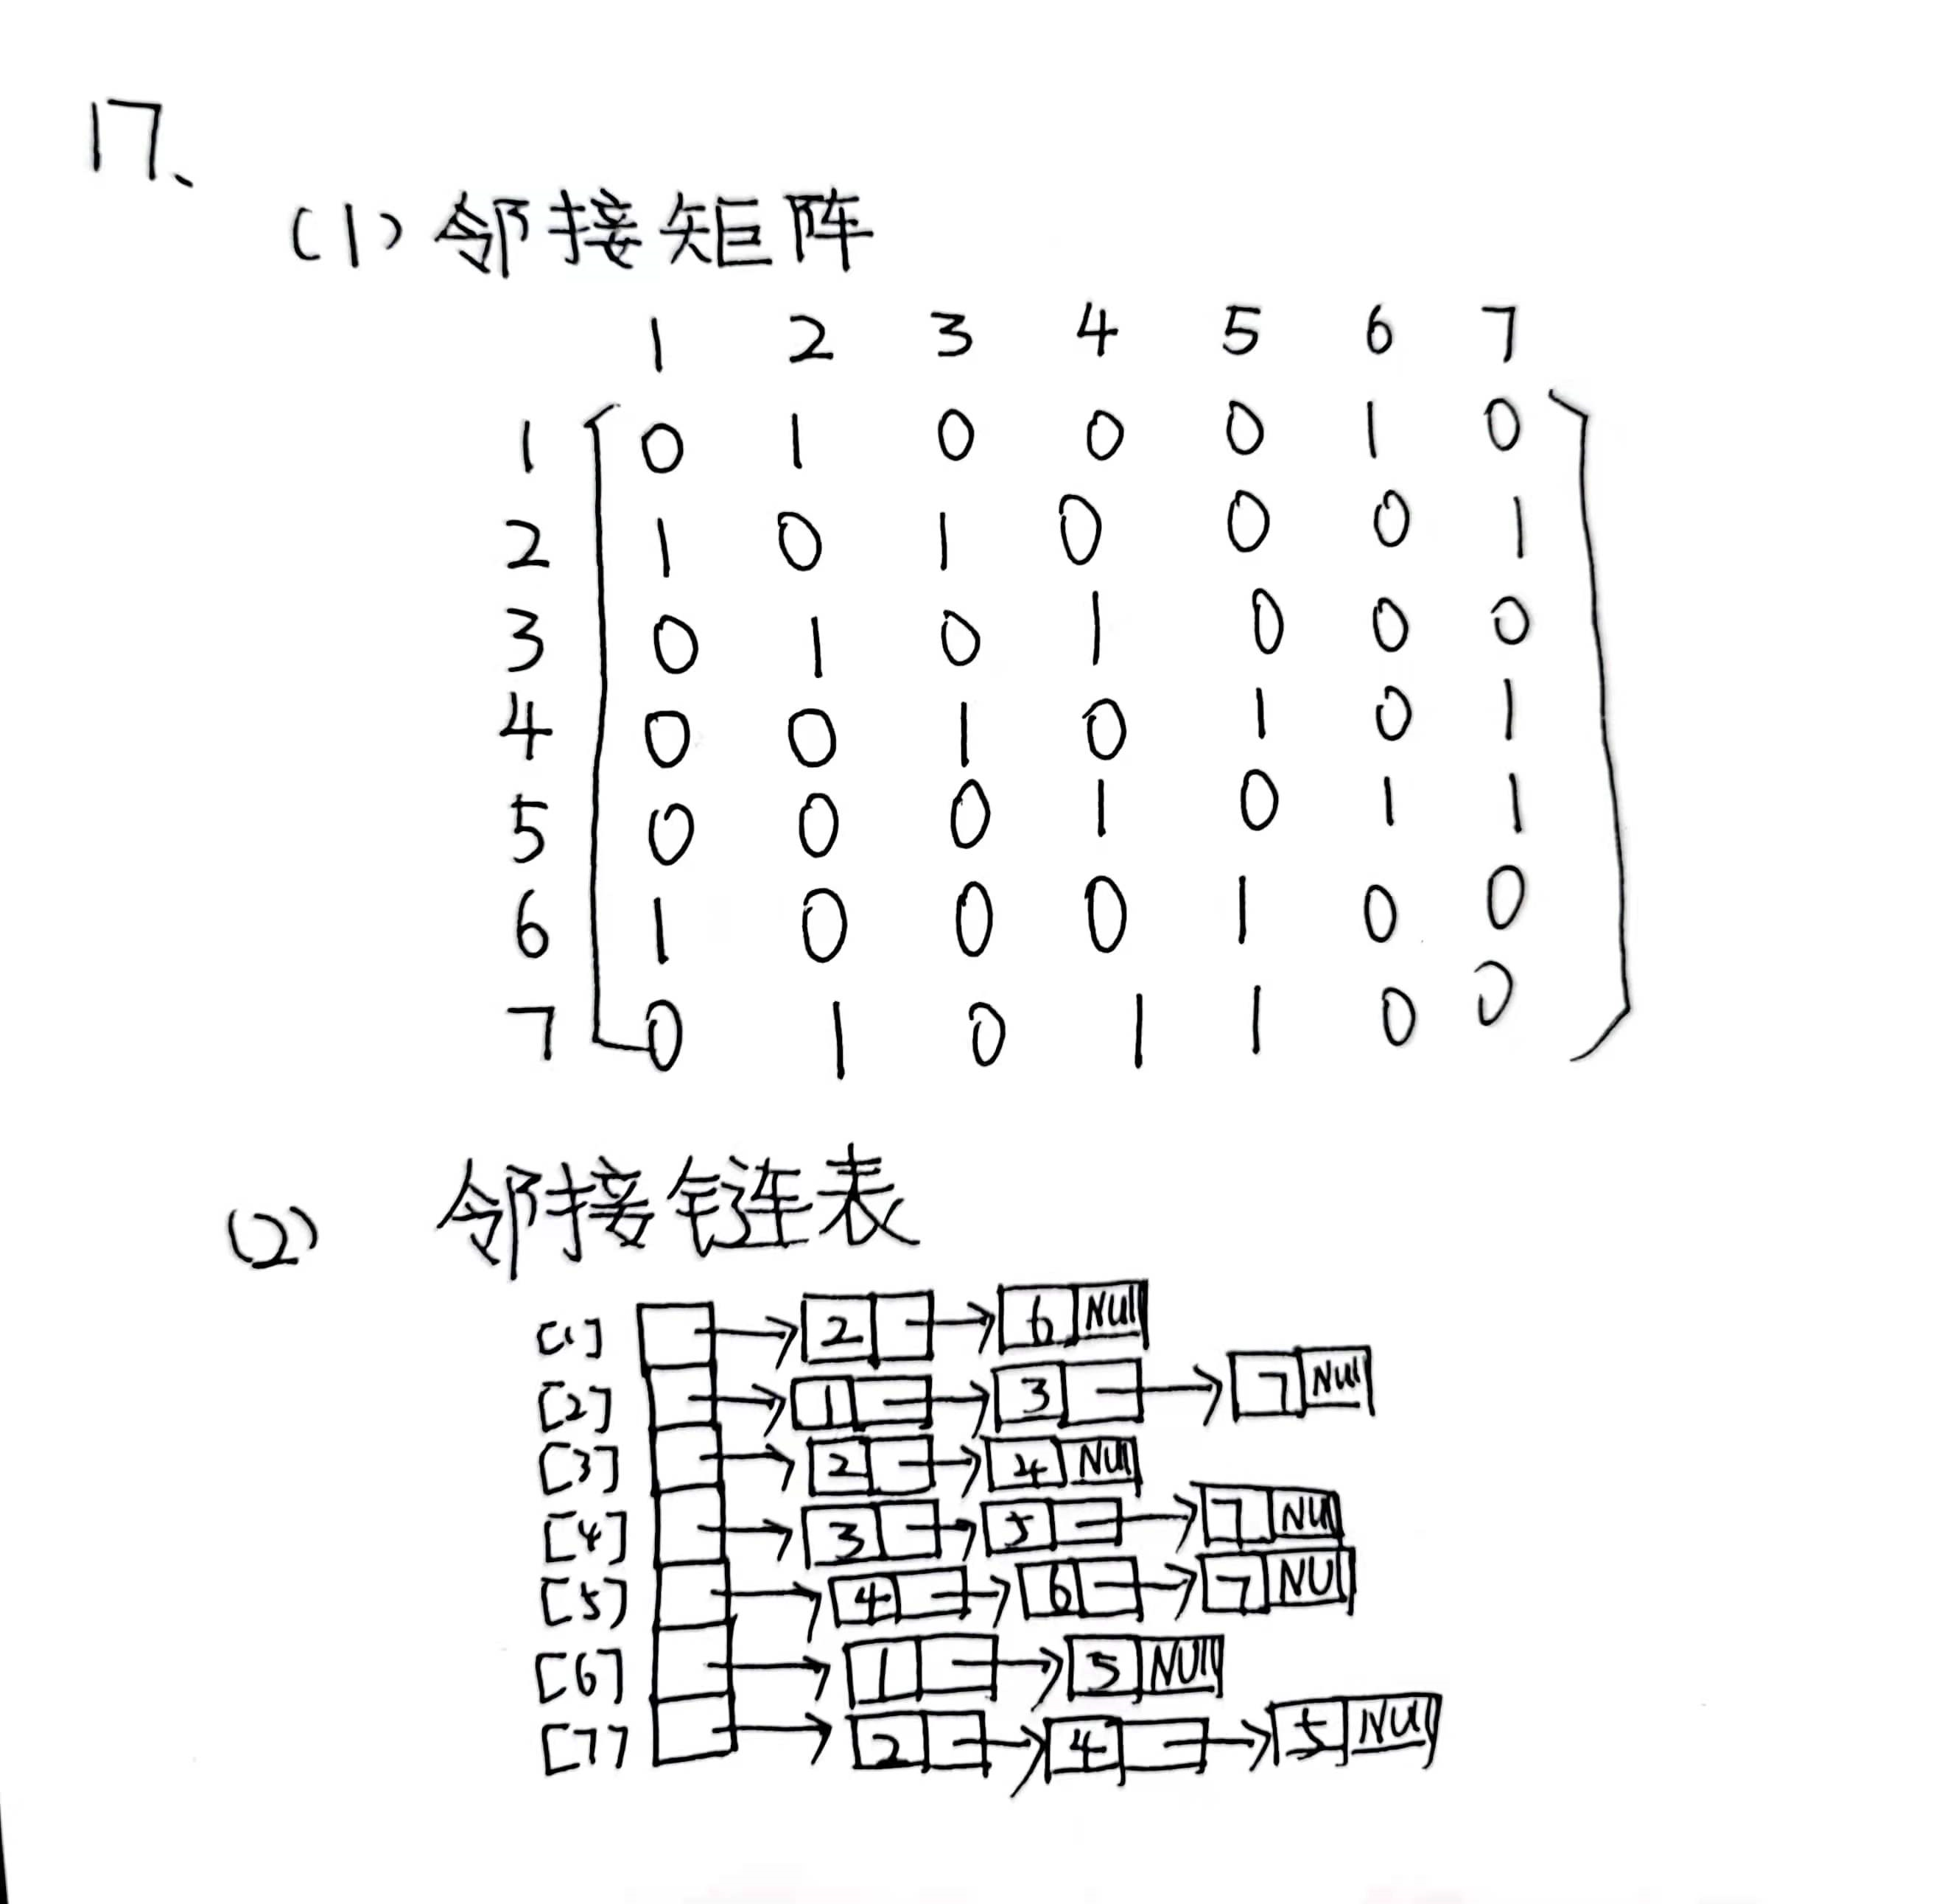 17、
(1) 邻接矩阵
1 2 3 4 5 6 7
1 0 1 0 0 0 1 0
2 1 0 1 0 0 0 1
3 0 1 0 1 0 0 0
4 0 0 1 0 1 0 1
5 0 0 0 1 0 1 1
6 1 0 0 0 1 0 0
7 0 1 0 1 1 0 0
(2) 邻接链表
[1] 2 6 NUll
[2] 1 3 7 NUll
[3] 2 4 NUll
[4] 3 5 7 NUll
[5] 4 6 7 NUll
[6] 1 5 NUll
[7] 2 4 5 NUll